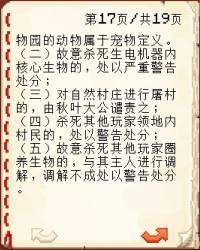 第17页/共19页
物园的动物属于宠物定义。
（二）故意杀死生电机器内
核心生物的，处以严重警告
处分；
（三）对自然村庄进行屠村
的，由秋叶大公谴责之；
（四）杀死其他玩家领地内
村民的，处以警告处分；
（五）故意杀死其他玩家圈
养生物的，与其主人进行调
解，调解不成处以警告处分
。